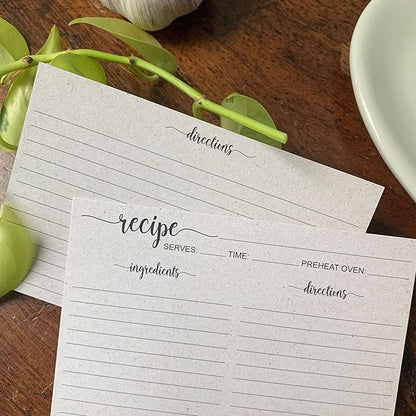 directions
recipe
SERVES: TIME: PREHEAT OVEN:
ingredients directions